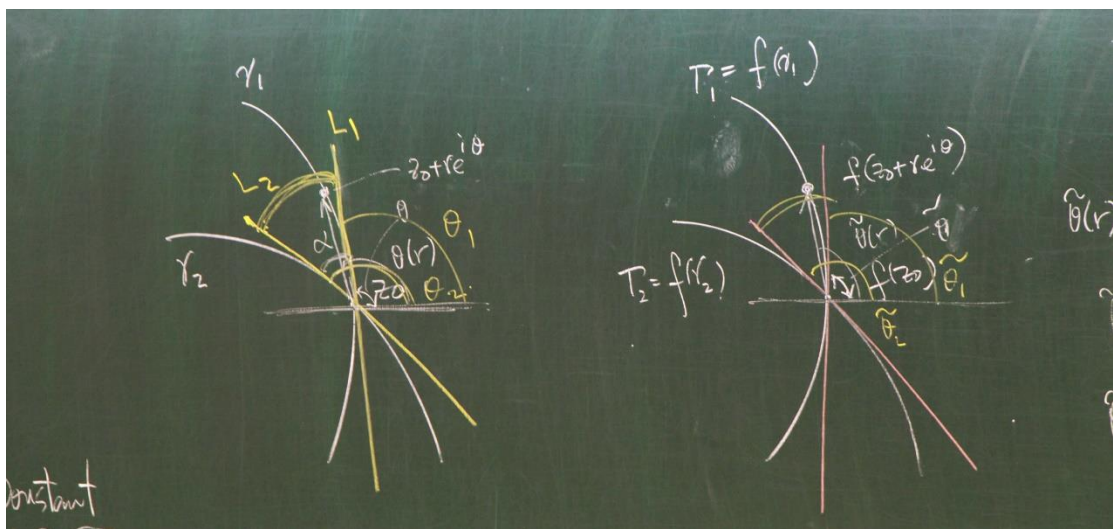 γ₁
L1
z₀+re^{iθ}
L2
θ
θ₁
α
θ(r)
γ₂
z₀
θ₂
Γ₁ = f(γ₁)
f(z₀+re^{iθ})
θ̃(r)
θ̃
Γ₂ = f(γ₂)
f(z₀)
θ̃₁
θ̃₂
θ̃(r)
Constant